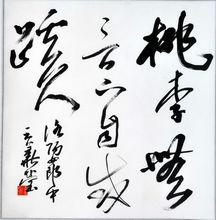 桃李無
言下自成
蹊
洛陽